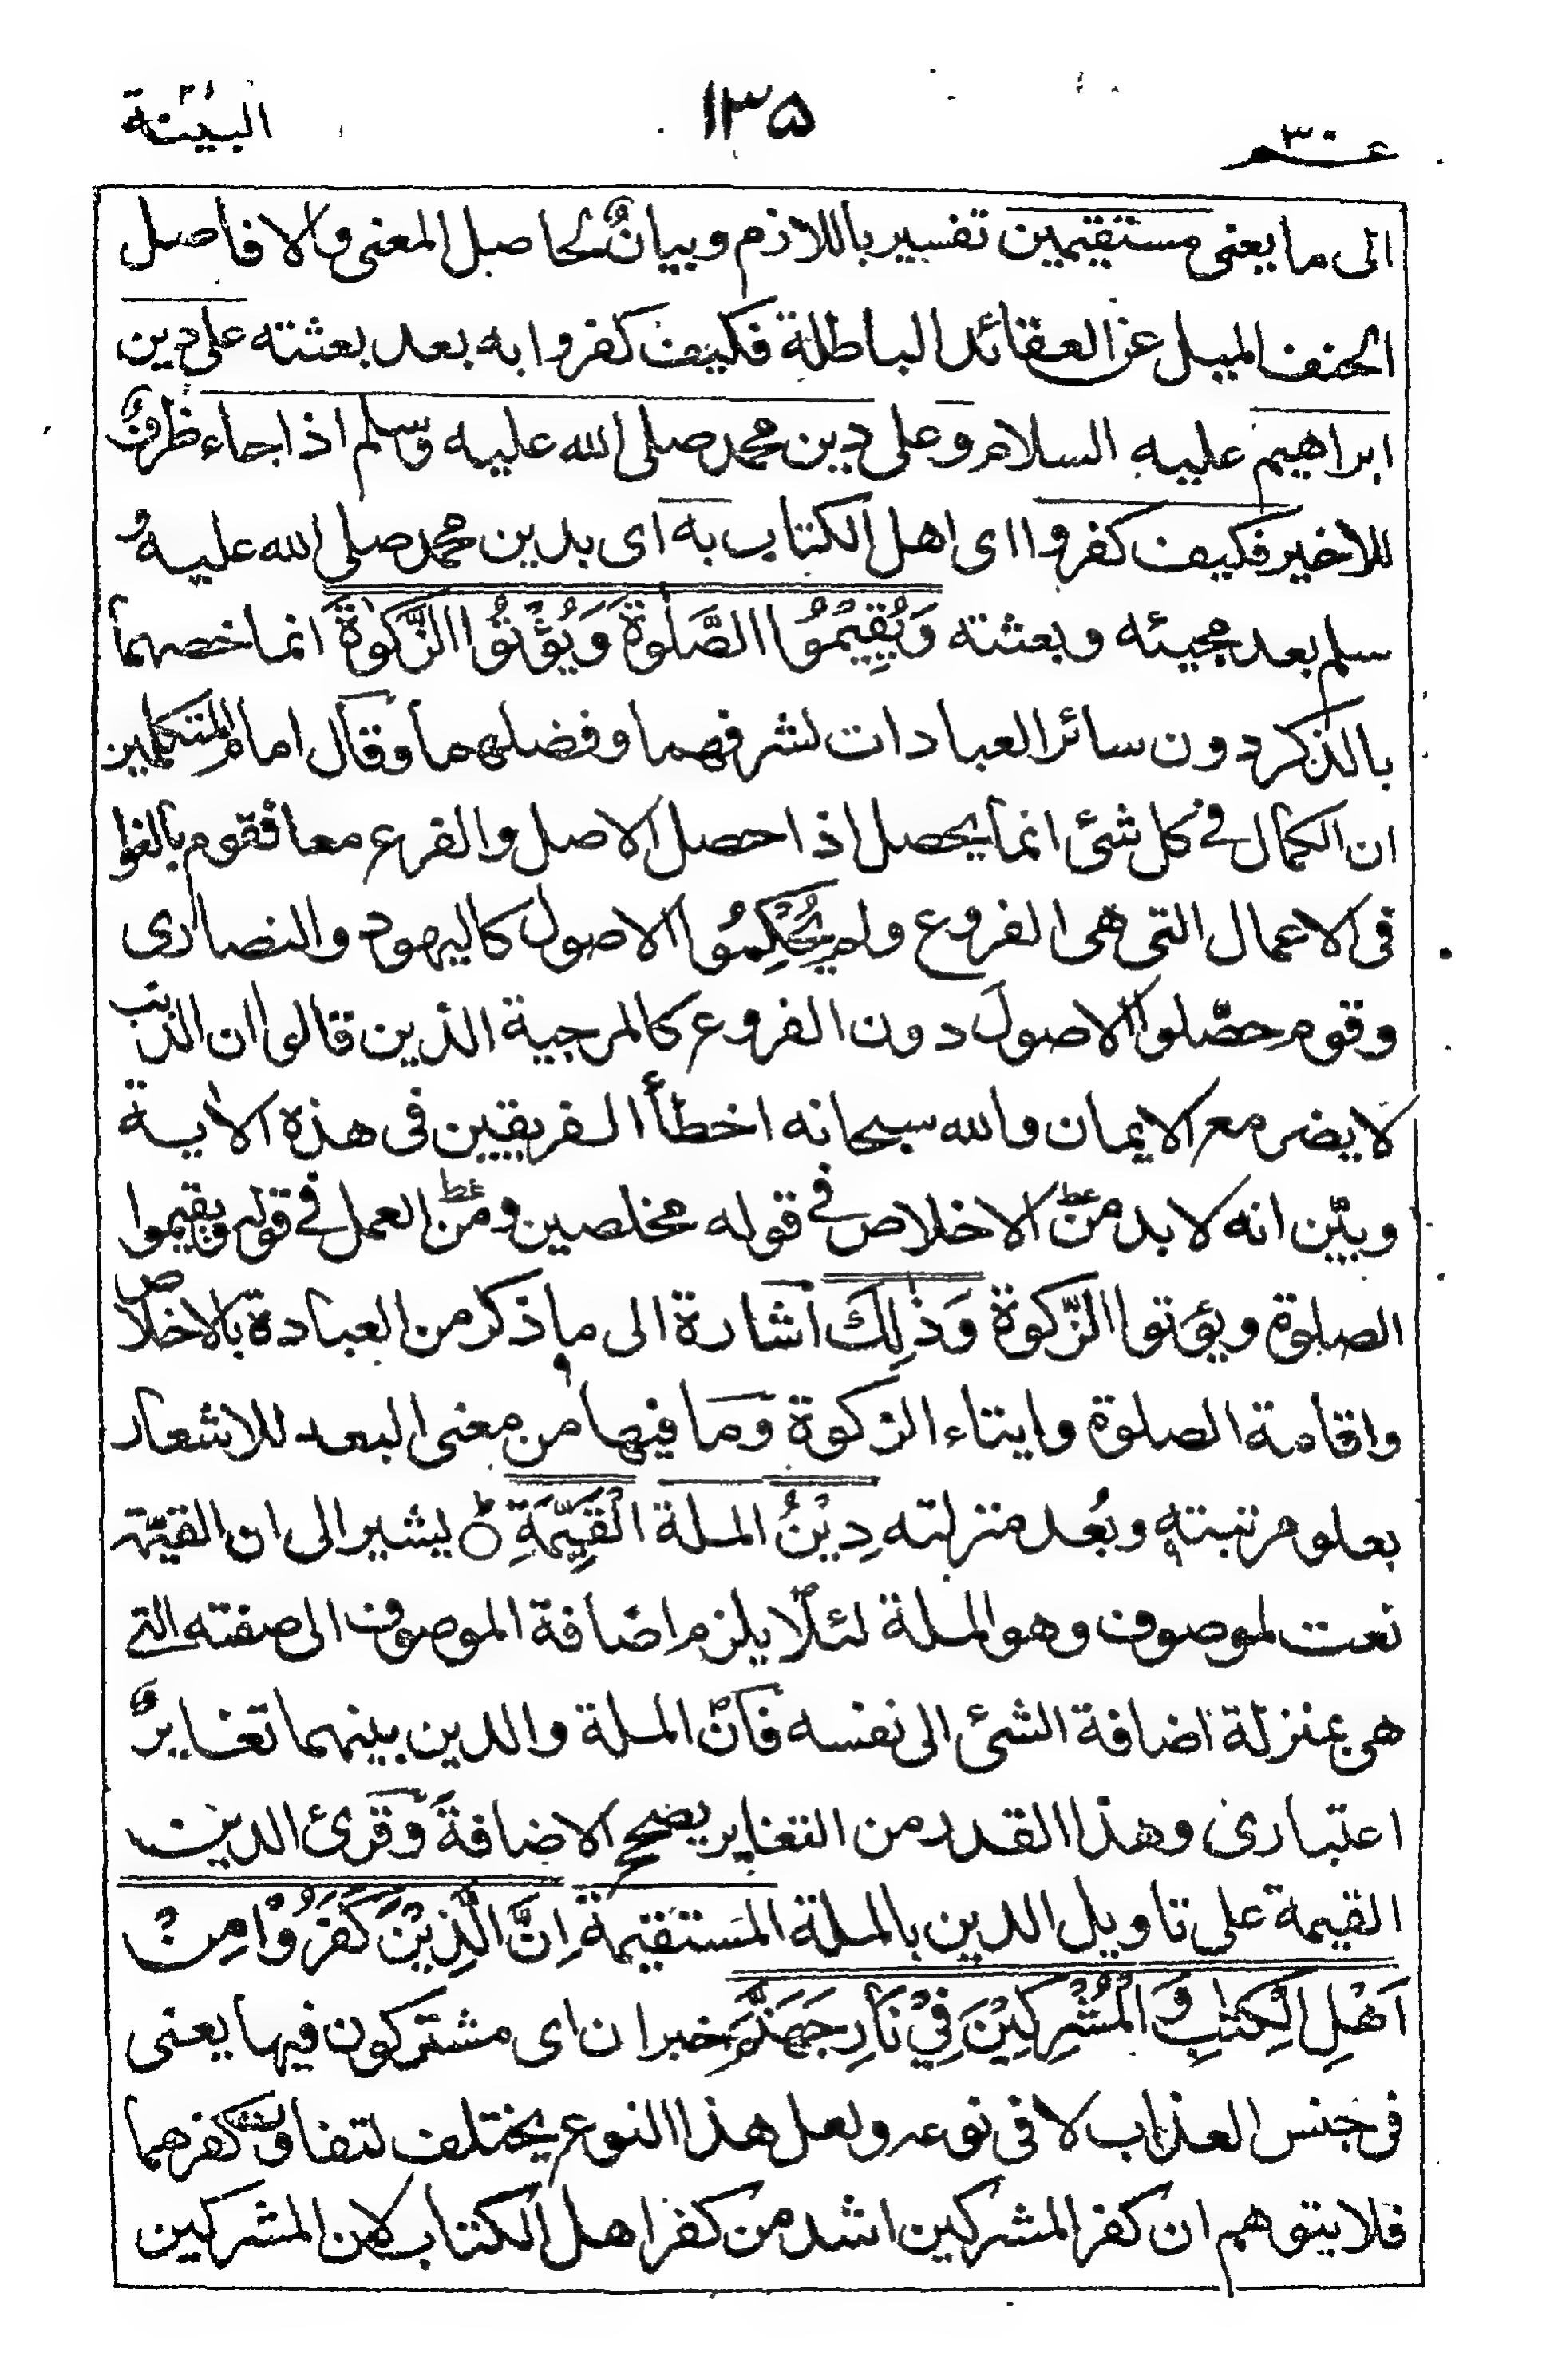 عـم ٣٠
١٣٥
البينة
الى ما يعنى مستقيمين تفسير باللازم وبيانٌ لحاصل المعنى والا فاصل
الحنف الميل عن العقائد الباطلة فكيف كفروا به بعد بعثته على دين
ابراهيم عليه السلام وعلى دين محمد صلى الله عليه وسلم اذا جاء ظرفٌ
للاخير فكيف كفروا اى اهل الكتاب به اى بدين محمد صلى الله عليه و
سلم بعد مجيئه وبعثته وَيُقِيْمُوا الصَّلٰوةَ وَيُؤْتُوا الزَّكٰوةَ انما خصهما
بالذكر دون سائر العبادات لشرفهما وفضلهما وقال امام المتكلمين
ان الكمال فى كل شئ انما يحصل اذا حصل الاصل والفرع معا فقوم بالغوا
فى الاعمال التى هى الفروع ولم يُحْكِمُوا الاصول كاليهود والنصارى
وقوم حصّلوا الاصول دون الفروع كالمرجية الذين قالوا ان الذنب
لا يضر مع الايمان والله سبحانه اخطأ الفريقين فى هذه الاية
وبيّن انه لا بد من الاخلاص فى قوله مخلصين ومن العمل فى قوله ويقيموا
الصلوة ويؤتوا الزّكوة وَذٰلِكَ اشارة الى ما ذكر من العبادة بالاخلاص
واقامة الصلوة وايتاء الزكوة وما فيها من معنى البعد للاشعار
بعلو مرتبته وبُعد منزلته دِيْنُ الملة الْقَيِّمَةِ يشير الى ان القيّمة
نعت لموصوف وهو الملة لئلّا يلزم اضافة الموصوف الى صفته التى
هى بمنزلة اضافة الشئ الى نفسه فانّ الملة والدين بينهما تغايرٌ
اعتبارى وهذا القدر من التغاير يصحح الاضافة وقرئ الدين
القيمة على تاويل الدين بالملة المستقيمة اِنَّ الَّذِيْنَ كَفَرُوْا مِنْ
اَهْلِ الْكِتٰبِ وَالْمُشْرِكِيْنَ فِيْ نَارِ جَهَنَّمَ خبر ان اى مشتركون فيها يعنى
فى جنس العذاب لا فى نوعه ولعل هذا النوع يختلف لتفاوت كفرهما
فلا يتوهم ان كفر المشركين اشد من كفر اهل الكتاب لان المشركين